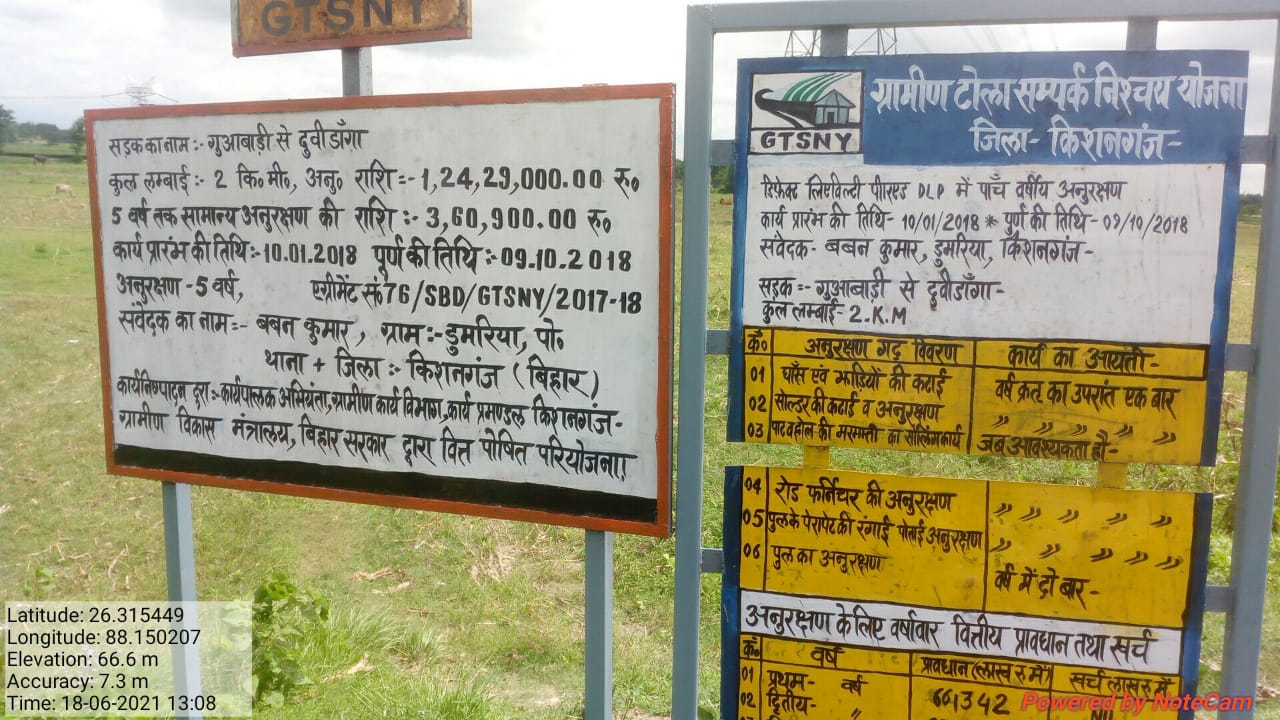 GTSNY
सड़क का नाम :- गुआबाड़ी से दुवीडाँगा
कुल लम्बाई :- 2 कि॰मी॰, अनु॰ राशि :- 1,24,29,000.00 रु॰
5 वर्ष तक सामान्य अनुरक्षण की राशि :- 3,60,900.00 रु॰
कार्य प्रारंभ की तिथि :- 10.01.2018 पूर्ण की तिथि :- 09.10.2018
अनुरक्षण - 5 वर्ष, एग्रीमेंट सं॰ 76/SBD/GTSNY/2017-18
संवेदक का नाम :- बबन कुमार, ग्राम :- डुमरिया, पो॰
थाना + जिला :- किशनगंज (बिहार)
कार्यनिष्पादन द्वारा :- कार्यपालक अभियंता, ग्रामीण कार्य विभाग, कार्य प्रमण्डल किशनगंज-
ग्रामीण विकास मंत्रालय, बिहार सरकार द्वारा वित्त पोषित परियोजना
GTSNY
ग्रामीण टोला सम्पर्क निश्चय योजना
जिला- किशनगंज-
डिफेक्ट लिएविल्टी पीरएड DLP में पाँच वर्षीय अनुरक्षण
कार्य प्रारंभ की तिथि - 10/01/2018 * पुर्ण की तिथि - 09/10/2018
संवेदक- बबन कुमार, डुमरिया, किशनगंज-
सड़क:- गुआबाड़ी से दुवीडाँगा-
कुल लम्बाई- 2.K.M
क्रं॰ अनुरक्षण गद्द विवरण कार्य का आयती-
01 घाँस एवं झाड़ियों की कटाई वर्ष क्रत का उपरांत एक बार
02 सोल्डर की कटाई व अनुरक्षण " " " " "
03 पाट वहौल की मरमात्ती का सीलिंग कार्य जब आवश्यकता है-
04 रोड फर्निचर की अनुरक्षण " " " "
05 पुल के पेरापेट की रंगाई पोताई अनुरक्षण " " " "
06 पुल का अनुरक्षण वर्ष में दो बार-
अनुरक्षण के लिए वर्षावार वित्तीय प्रावधान तथा खर्च
क्रं॰ वर्ष प्रावधान (लाख रु में) खर्च लाख रु में
01 प्रथम- वर्ष 661342
02 द्वितीय- "
Latitude: 26.315449
Longitude: 88.150207
Elevation: 66.6 m
Accuracy: 7.3 m
Time: 18-06-2021 13:08
Powered by NoteCam